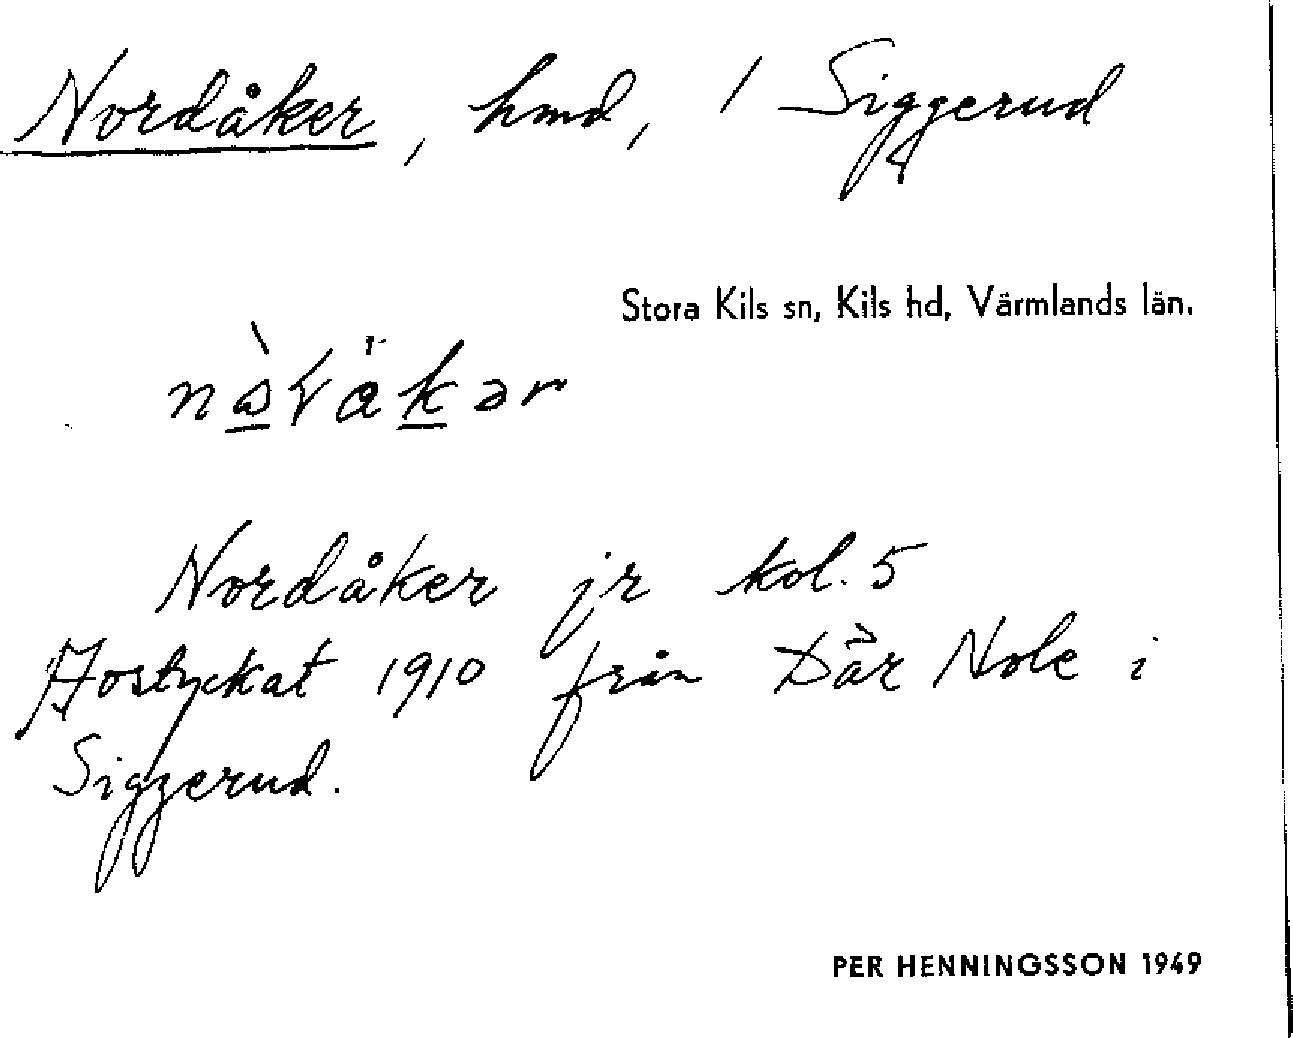 Nordåker, hmd, 1 Siggerud
Stora Kils sn, Kils hd, Värmlands län.
Nordåker jr kol. 5
Avstyckat 1910 från Där Nole i
Siggerud.
PER HENNINGSSON 1949